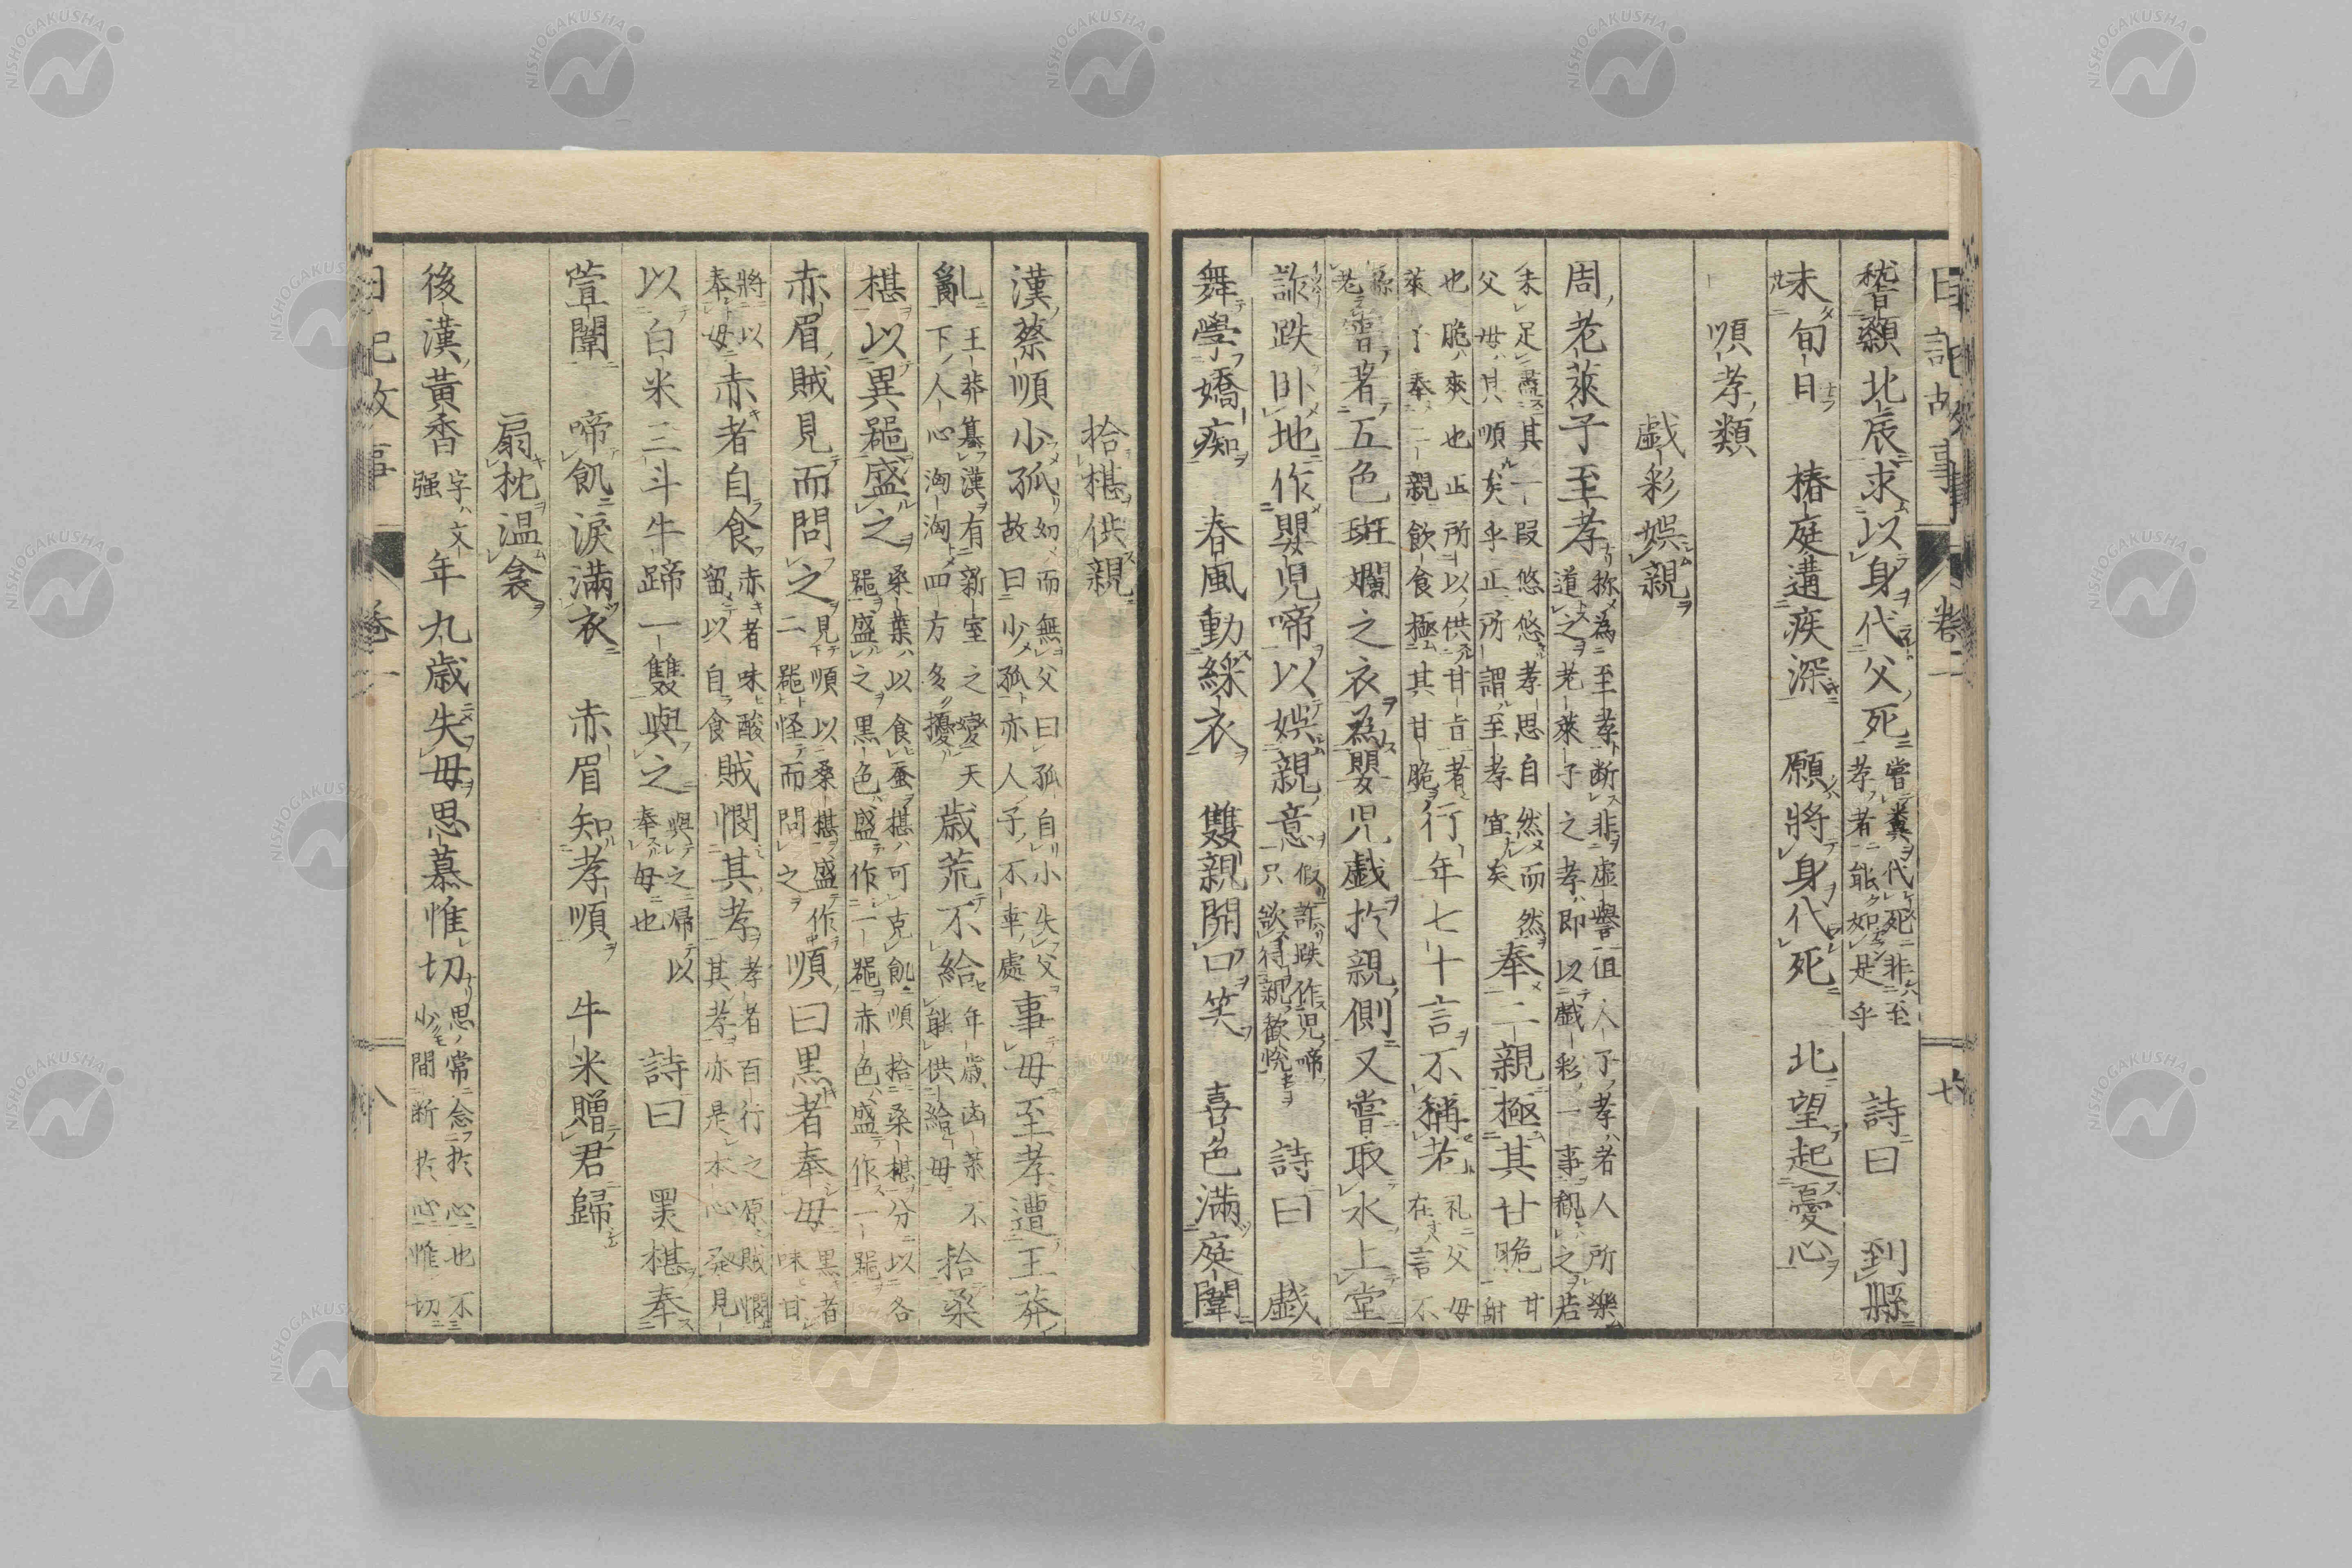 日記故事 卷一 七
稽顙北辰求以身代父死 嘗糞代死非至孝者能如是乎 詩曰 到縣
未旬日 椿庭遘疾深 願將身代死 北望起憂心
順孝類
戯彩娯親
周老萊子至孝 称為至孝断非虚譽但人子孝者人所樂道之老萊子之孝即以戯彩一事觀之若
未足盡其一叚悠悠孝思自然而然父母其順矣乎正所謂至孝宜矣 奉二親極其甘脆 甘甜
也脆爽也正所以供甘旨者萊子奉二親飲食極其甘脆 行年七十言不稱老 礼父母在言不
称老 嘗著五色斑斕之衣為嬰児戯於親側又嘗取水上堂
詐跌卧地作嬰児啼以娯親意 假詐跌作児啼只欲得親歓悦 詩曰 戯
舞學嬌痴 春風動綵衣 雙親開口笑 喜色満庭闈
拾椹供親
漢蔡順少孤 幼而無父曰孤自小失父故曰少孤亦人子不幸處 事母至孝遭王莽
亂 王莽簒漢有新室之變天下人心洶洶四方多擾 歳荒不給 年歳凶荼不能供給母 拾桑
椹以異噐盛之 桑葉以食蚕椹可克飢順拾桑椹分以各噐盛之黒色盛作一噐赤色盛作一噐
赤眉賊見而問之 見順以桑椹盛作二噐怪而問之 順曰黒者奉母 黒者味甘
將以奉母 赤者自食 赤者味酸留以自食 賊憫其孝 孝者百行之原賊憫其孝亦是本心發見
以白米三斗牛蹄一雙與之 與之帰以奉母也 詩曰 黒椹奉
萱闈 啼飢涙満衣 赤眉知孝順 牛米贈君歸
扇枕温衾
後漢黃香 字文强 年九歳失母思慕惟切 思常念於心也不少間断於心惟切
日記故事 卷一 八